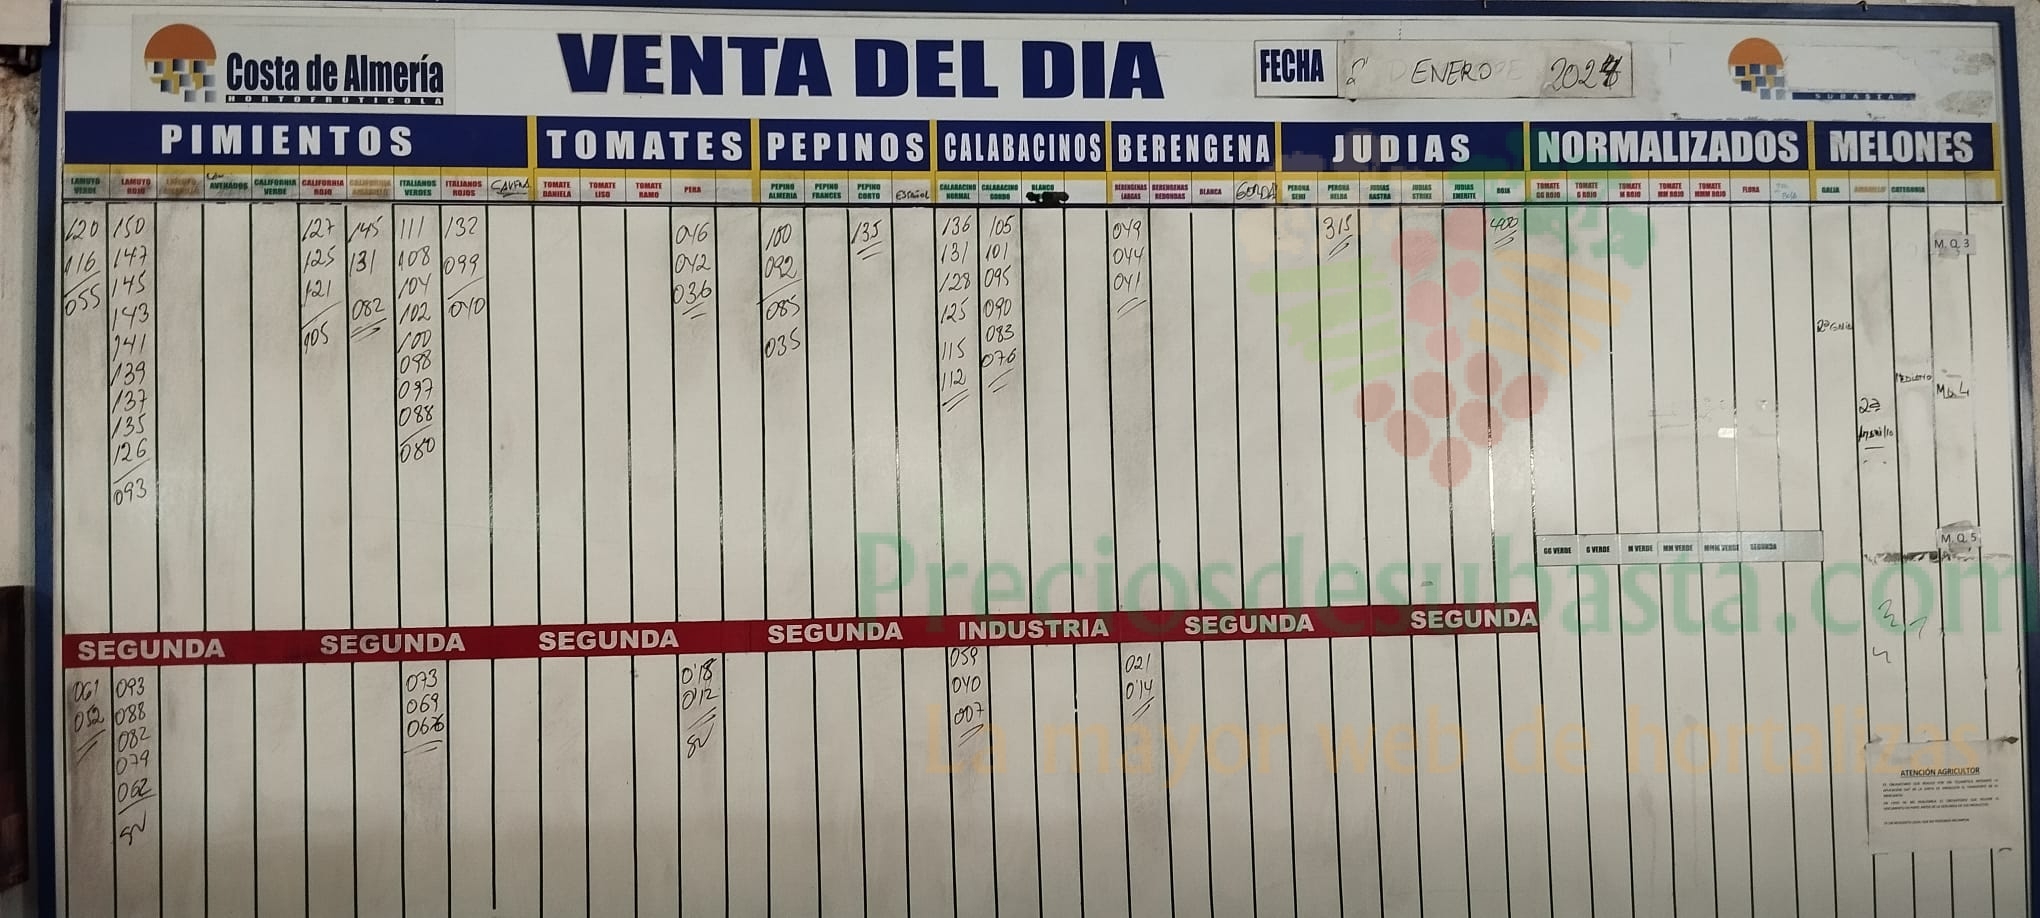 Costa de Almería
HORTOFRUTICOLA
VENTA DEL DIA
FECHA 2 ENERO 2024
SUBASTA
PIMIENTOS TOMATES PEPINOS CALABACINOS BERENGENA JUDIAS NORMALIZADOS MELONES
LAMUYO VERDE
LAMUYO ROJO
ASURADOS
CALIFORNIA VERDE
CALIFORNIA ROJO
CALIFORNIA AMARILLO
ITALIANOS VERDES
ITALIANOS ROJOS
TOMATE DANIELA
TOMATE LISO
TOMATE RAMO
PERA
PEPINO ALMERIA
PEPINO FRANCES
PEPINO CORTO
ESPAÑOL
CALABACINO NORMAL
CALABACINO GORDO
BLANCO
BERENGENAS LARGAS
BERENGENAS REDONDAS
BLANCA
GORDA
PERONA SEMI
PERONA HELDA
JUDIAS RASTRA
JUDIAS STRIKE
JUDIAS EMERITE
ROJA
TOMATE GG ROJO
TOMATE G ROJO
TOMATE M ROJO
TOMATE MM ROJO
TOMATE MMM ROJO
FLORA
GALIA
AMARILLO
CATEGORIA
120
116
055
150
147
145
143
141
139
137
135
126
093
127
125
121
105
145
131
082
111
108
104
102
100
098
097
088
080
132
099
040
046
042
036
100
092
085
035
135
136
131
128
125
115
112
105
101
095
090
083
076
049
044
041
315
400
M. Q. 3
2ª GALIA
2ª
Amarillo
M. Q. 5
GG VERDE G VERDE M VERDE MM VERDE MMM VERDE SEGUNDA
Preciosdesubasta.com
SEGUNDA SEGUNDA SEGUNDA SEGUNDA INDUSTRIA SEGUNDA SEGUNDA
061
052
093
088
082
079
062
SV
073
069
0'18
0'12
SV
059
040
007
021
0'14
La mayor web de hortalizas
ATENCIÓN AGRICULTOR